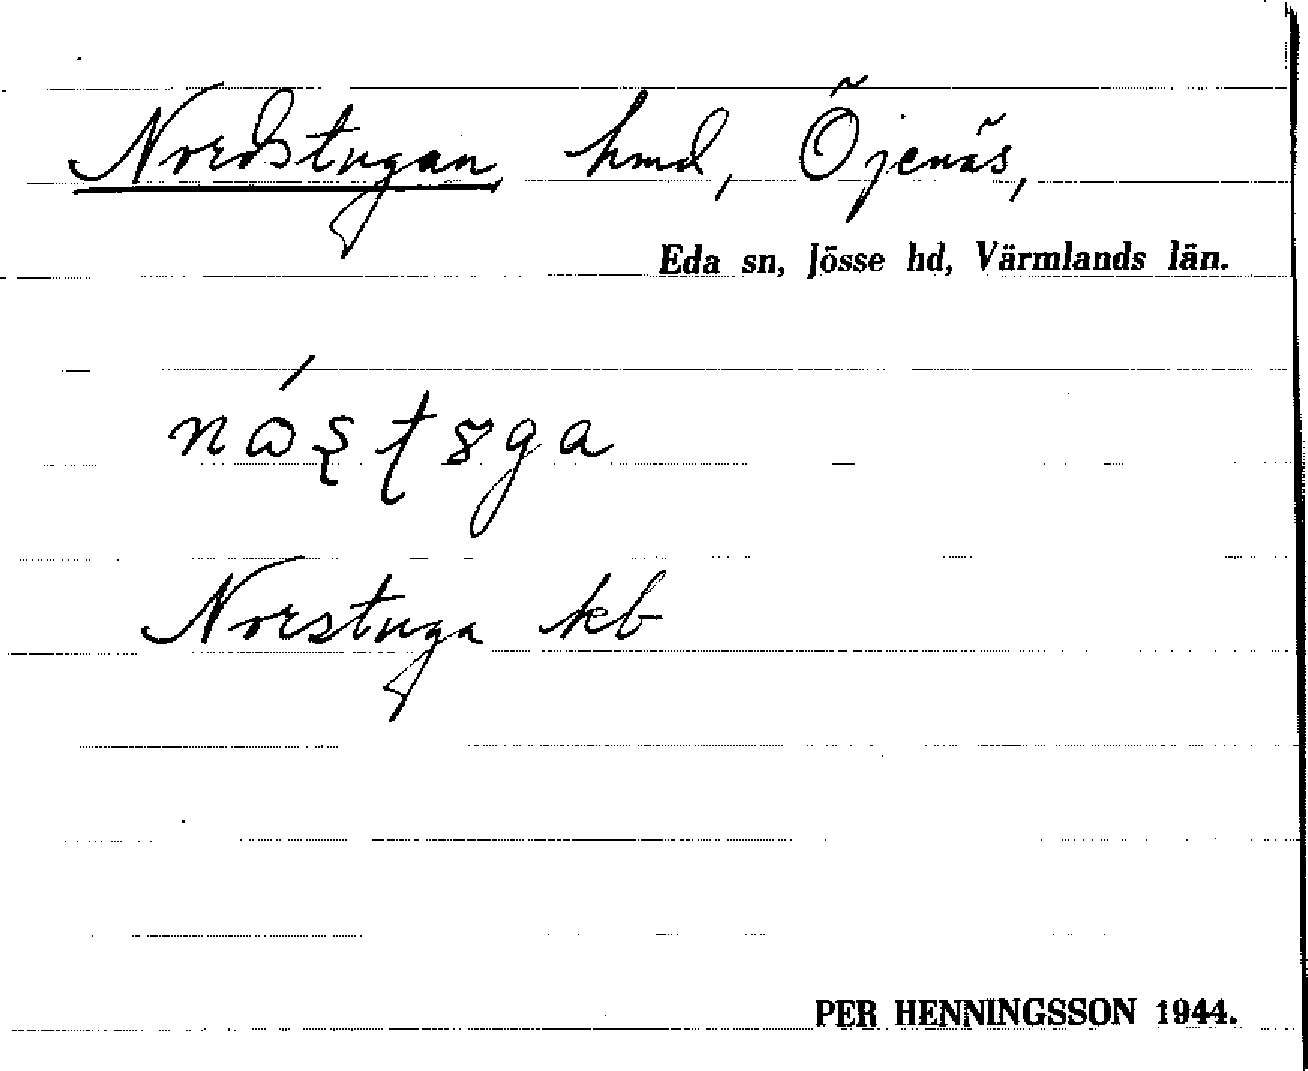 Nordstugan hmd, Öjenäs,
Eda sn, Jösse hd, Värmlands län.
Norstuga kb
PER HENNINGSSON 1944.